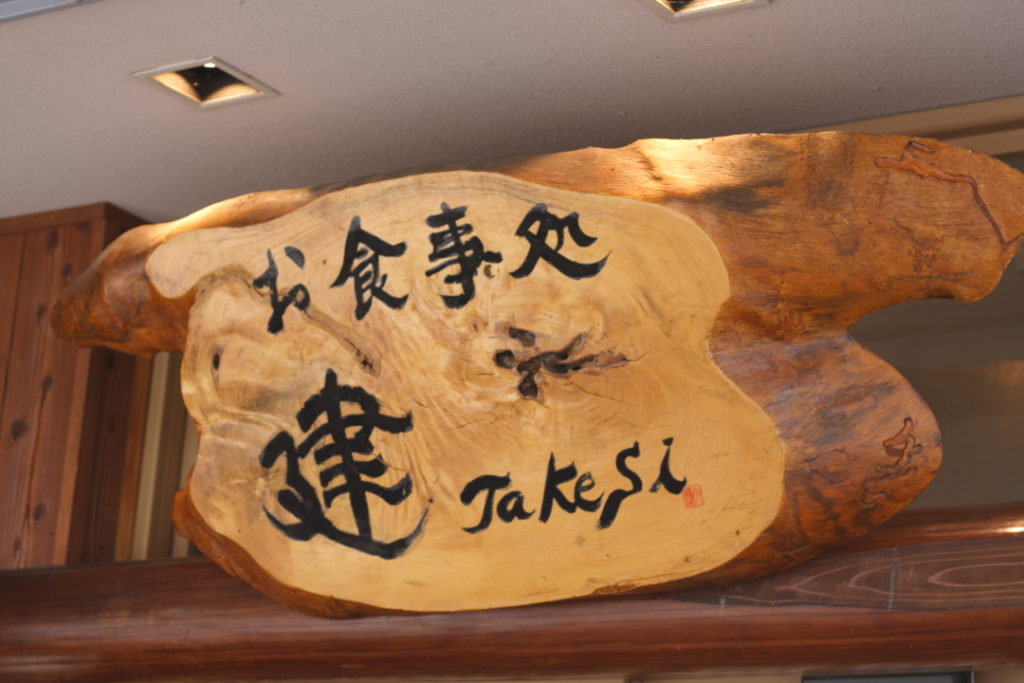 お食事処
建 Takesi